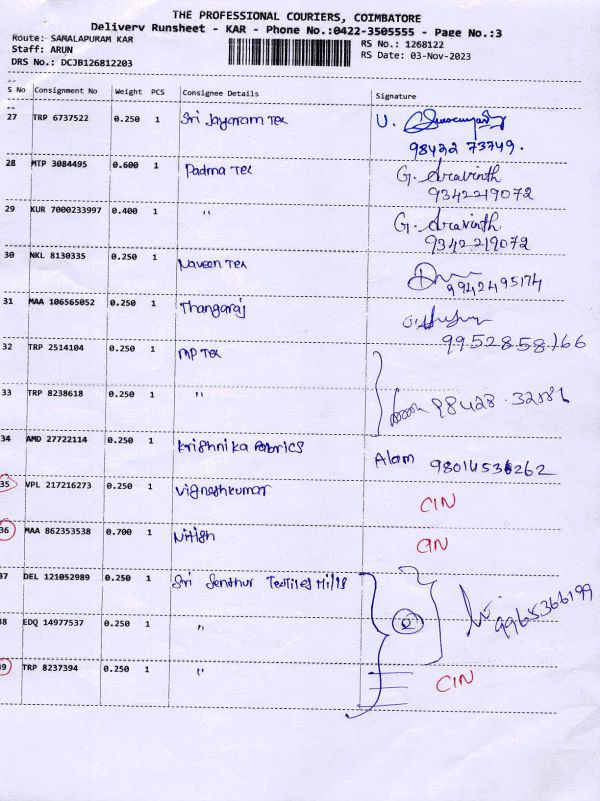 THE PROFESSIONAL COURIERS, COIMBATORE
Delivery Runsheet - KAR - Phone No.:0422-3505555 - Page No.:3
Route: SAMALAPURAM KAR
Staff: ARUN
DRS No.: DCJB126812203
RS No.: 1268122
RS Date: 03-Nov-2023
S No Consignment No Weight PCS Consignee Details Signature
27 TRP 6737522 0.250 1 Sri Jayaram Tex U.
98422 73749.
28 MTP 3084495 0.600 1 Padma Tex G. Aravinth
9342219072
29 KUR 7000233997 0.400 1 " G. Aravinth
9342219072
30 NKL 8130335 0.250 1 Naveen Tex
9942495174
31 MAA 106565052 0.250 1 Thangaraj
9952858166
32 TRP 2514104 0.250 1 MP Tex
33 TRP 8238618 0.250 1 " 98428
34 AMD 27722114 0.250 1 Krishnika Fabrics Alam
35 VPL 217216273 0.250 1 Vigneshkumar CIN
36 MAA 862353538 0.700 1 Nitish CIN
37 DEL 121052989 0.250 1 Sri Senthur Textiles Mills
9965366199
38 EDQ 14977537 0.250 1 "
39 TRP 8237394 0.250 1 " CIN